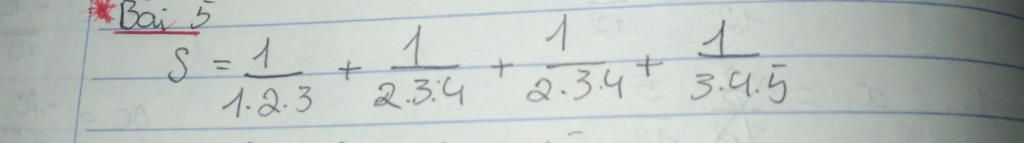 *Bài 5
S = 1/1.2.3 + 1/2.3.4 + 1/2.3.4 + 1/3.4.5